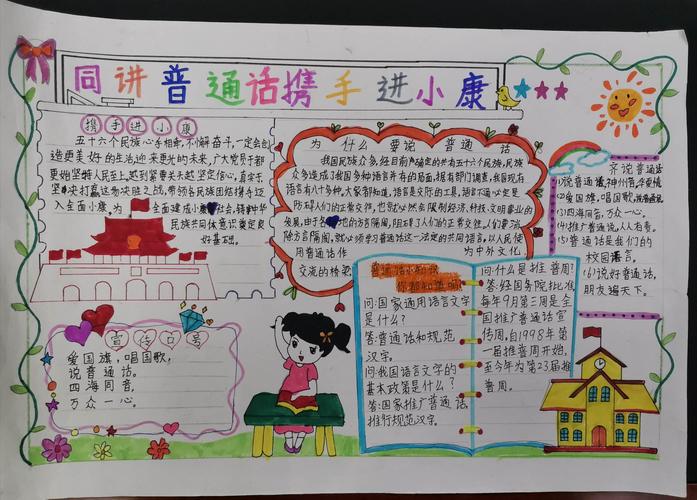 同讲普通话携手进小康
携手进小康
五十六个民族心手相牵,不懈奋斗,一定会创
造更美好的生活迎来更光的未来,广大党员干部
更始坚特人民至上,越到紧要关头越坚定信心,真索乐
坚决打赢这场决胜之战,带领各民族团结携手迈
入全面小康。为 全面建成小康社会,铸牢中华
民族共体意识奠定良
好基础。
为什么要说普通话
我国民族众多,经目前产确定的共有五十六个民族,民族
众多造成了我国多种语言并存的局面,据有部门调查,我国现有
语言有八十多种,大家都知道,语言是交际的工具,语言不通必定是
防碍人们的正常交作,也就必然会限制经济,科技,文明事业的
发展,由于各 地的方言隔阂,阻碍了人们的正常交往,人们要消
除方言隔阂,就必须学习普通话这一法定的共同语言,以人民使
用普通话作 为中外文化
交流的桥梁
齐说普通话
(1)说普通话,神州音,华夏情
(2)爱国旗,唱国歌,
(3)四海同音,万众一心。
(4)推广普通话,人人有责。
(5)普通话是我们的
校园语言
(6)说好普通话,
朋友遍天下。
宣传口号
爱国旗,唱国歌,
说普通话。
四海同音
万众一心。
普通话小知识
你都知道吗
问:国家通用语言文字
是什么?
答:普通话和规范
汉字。
问:我国语言文字的
基本政策是什么?
答:国家推广普通话,
推行规范汉字。
问:什么是推普周!
答:经国务院批准
每年9月第三周是全
国推广普通话宣
传周,自1998年第
一届推普周开始,
至今年为第23届推
普周。